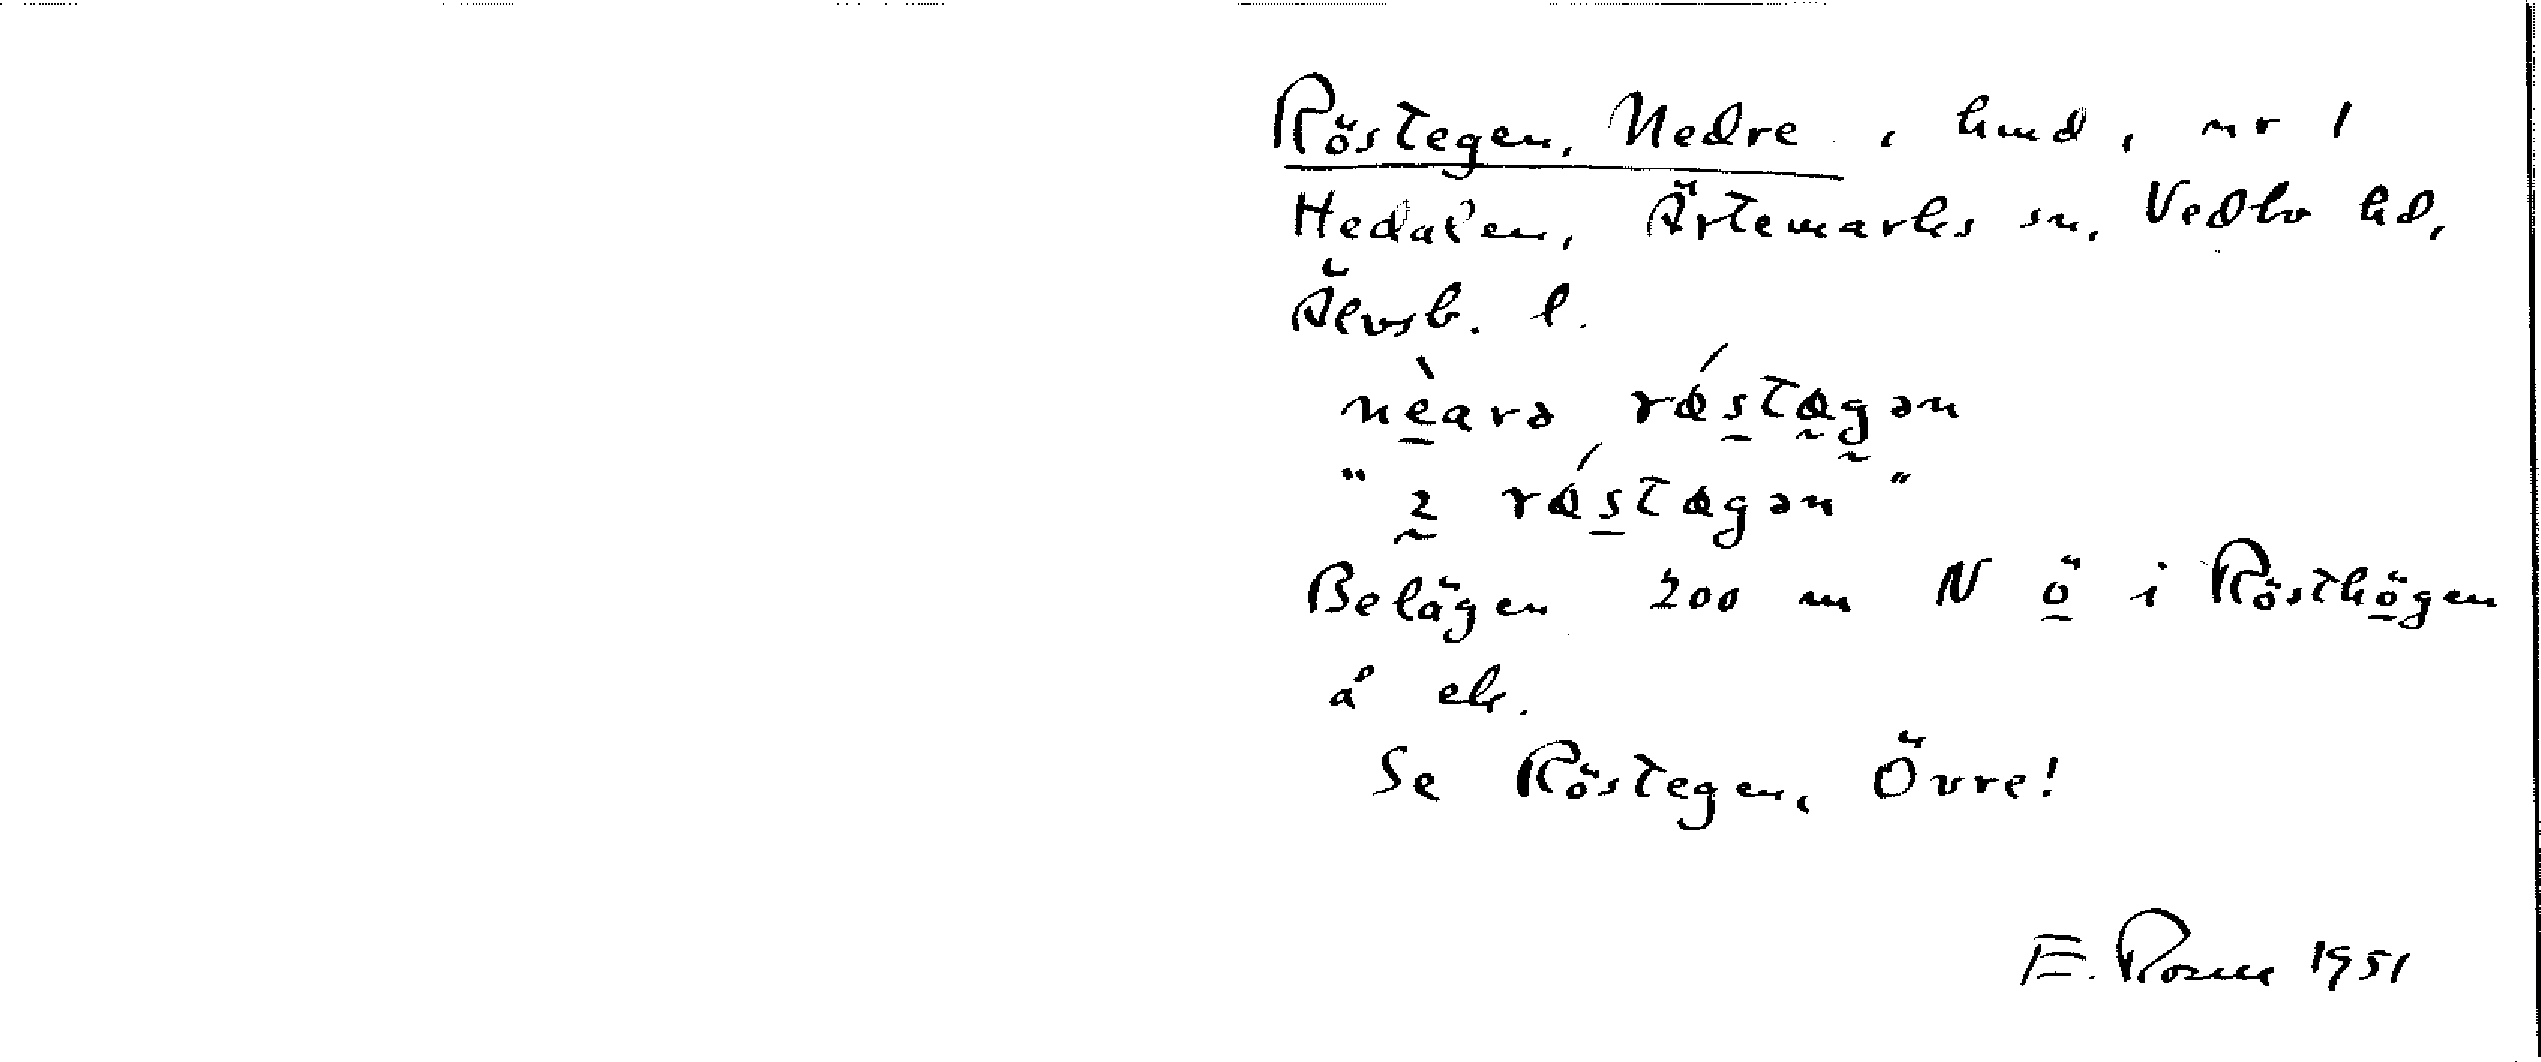 Röstegen, Nedre, hmd, nr 1
Hedalen, Ärtemarks sn, Vedbo hd,
Älvsb. l.
nèarə rǿstøgən
"2 rǿstøgən"
Belägen 200 m N ö i Rösthögen
å ek.
Se Röstegen, Övre!
E. Rosell 1951